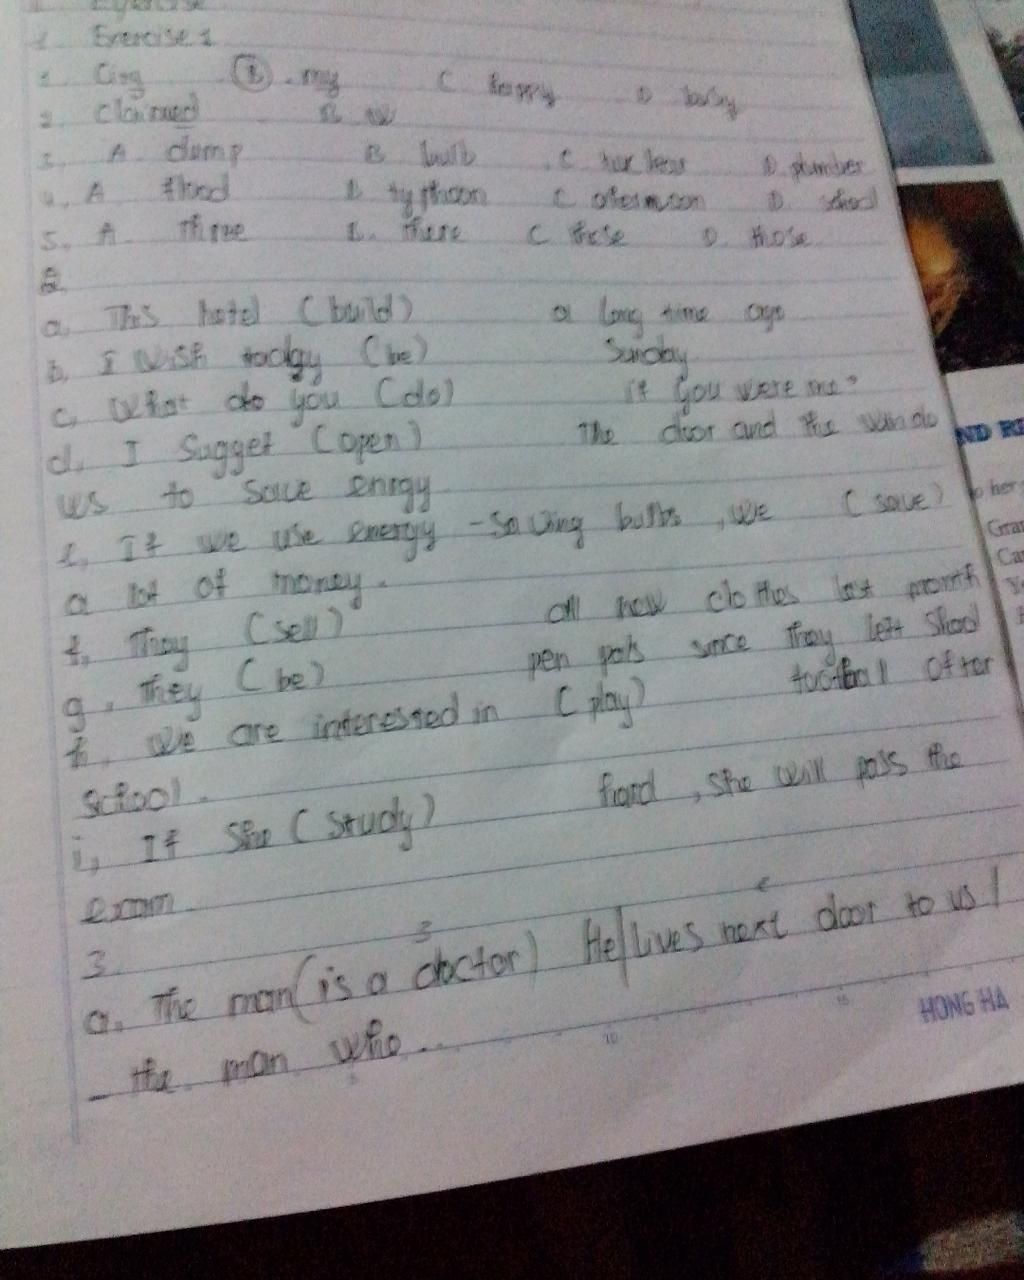 Exercise 1
1. City B. my C happy D busy
2. Claimed B
3. A dump B bulb C nuclear D plumber
4. A flood B typhoon C afternoon D. school
5. A. Three B. there C these D those
2.
a. This hotel (build) a long time ago
b. I wish today (be) Sunday
c, What do you (do) if you were me?
d, I Sugget (open) The door and the windo
ws to save enrgy
e, If we use energy - saving bulbs, we (save)
a lot of money.
f, They (sell) all new clothes last month
g, They (be) pen pals since they left shool
h, We are interested in (play) football after
school.
i, If She (study) hard, she will pass the
exam
3.
a. The man (is a doctor) He lives next door to us /
_ the man who...
HONG HA
10
15
ND RE
Gra
Ca